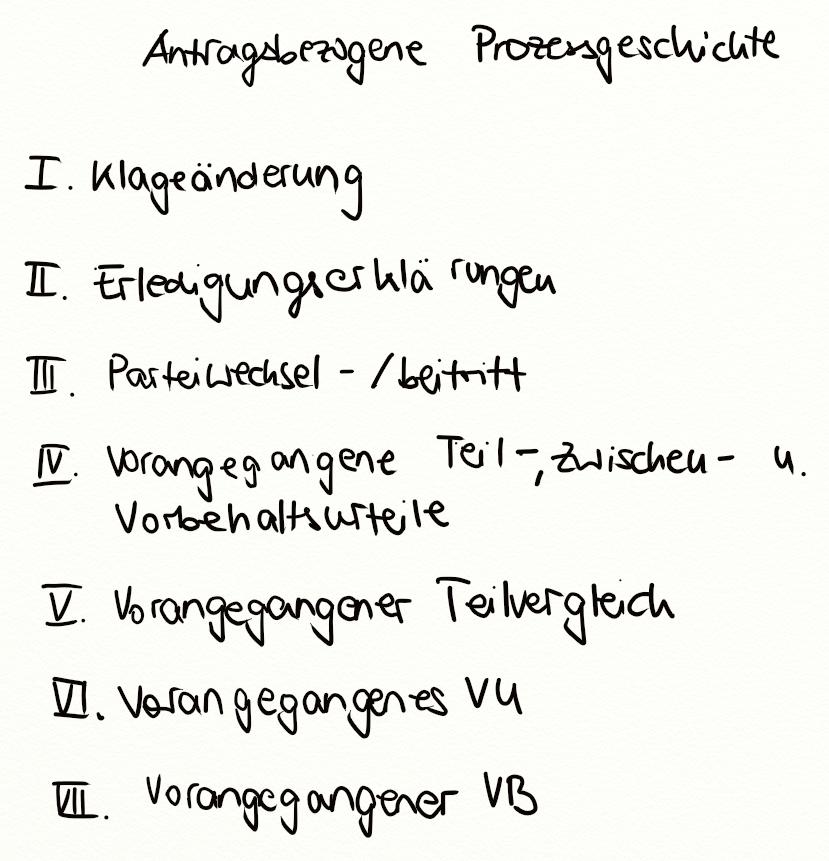 Antragsbezogene Prozessgeschichte
I. Klageänderung
II. Erledigungserklärungen
III. Parteiwechsel - / beitritt
IV. Vorangegangene Teil-, Zwischen- u.
Vorbehaltsurteile
V. Vorangegangener Teilvergleich
VI. Vorangegangenes VU
VII. Vorangegangener VB